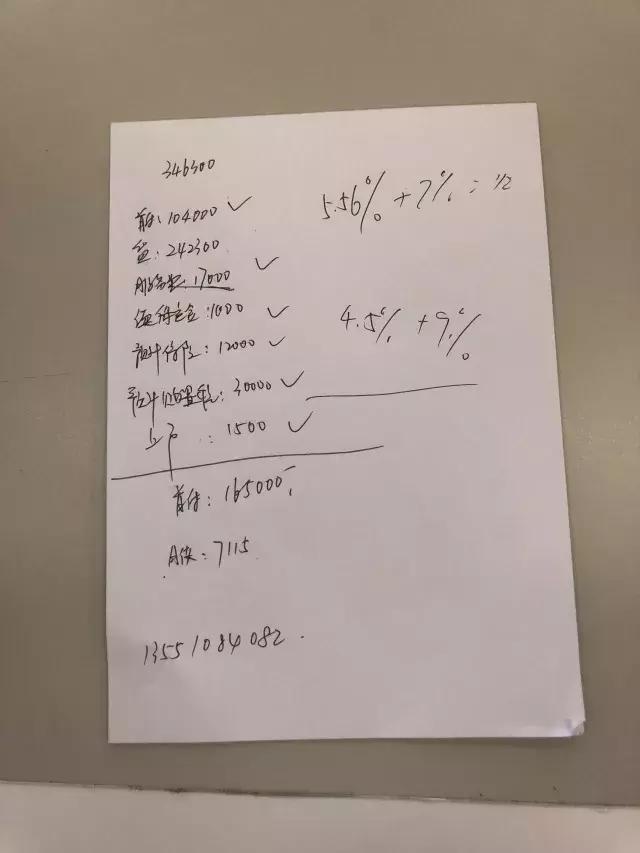 346300
首付: 104000 ✓
贷: 242300
服务费: 17000 ✓
保证金: 1000 ✓
预计保险: 12000 ✓
预计购置税: 30000 ✓
上户: 1500 ✓
首付: 165000
月供: 7115
13551084082
5.56% + 7% = 1/2
4.5% + 9%